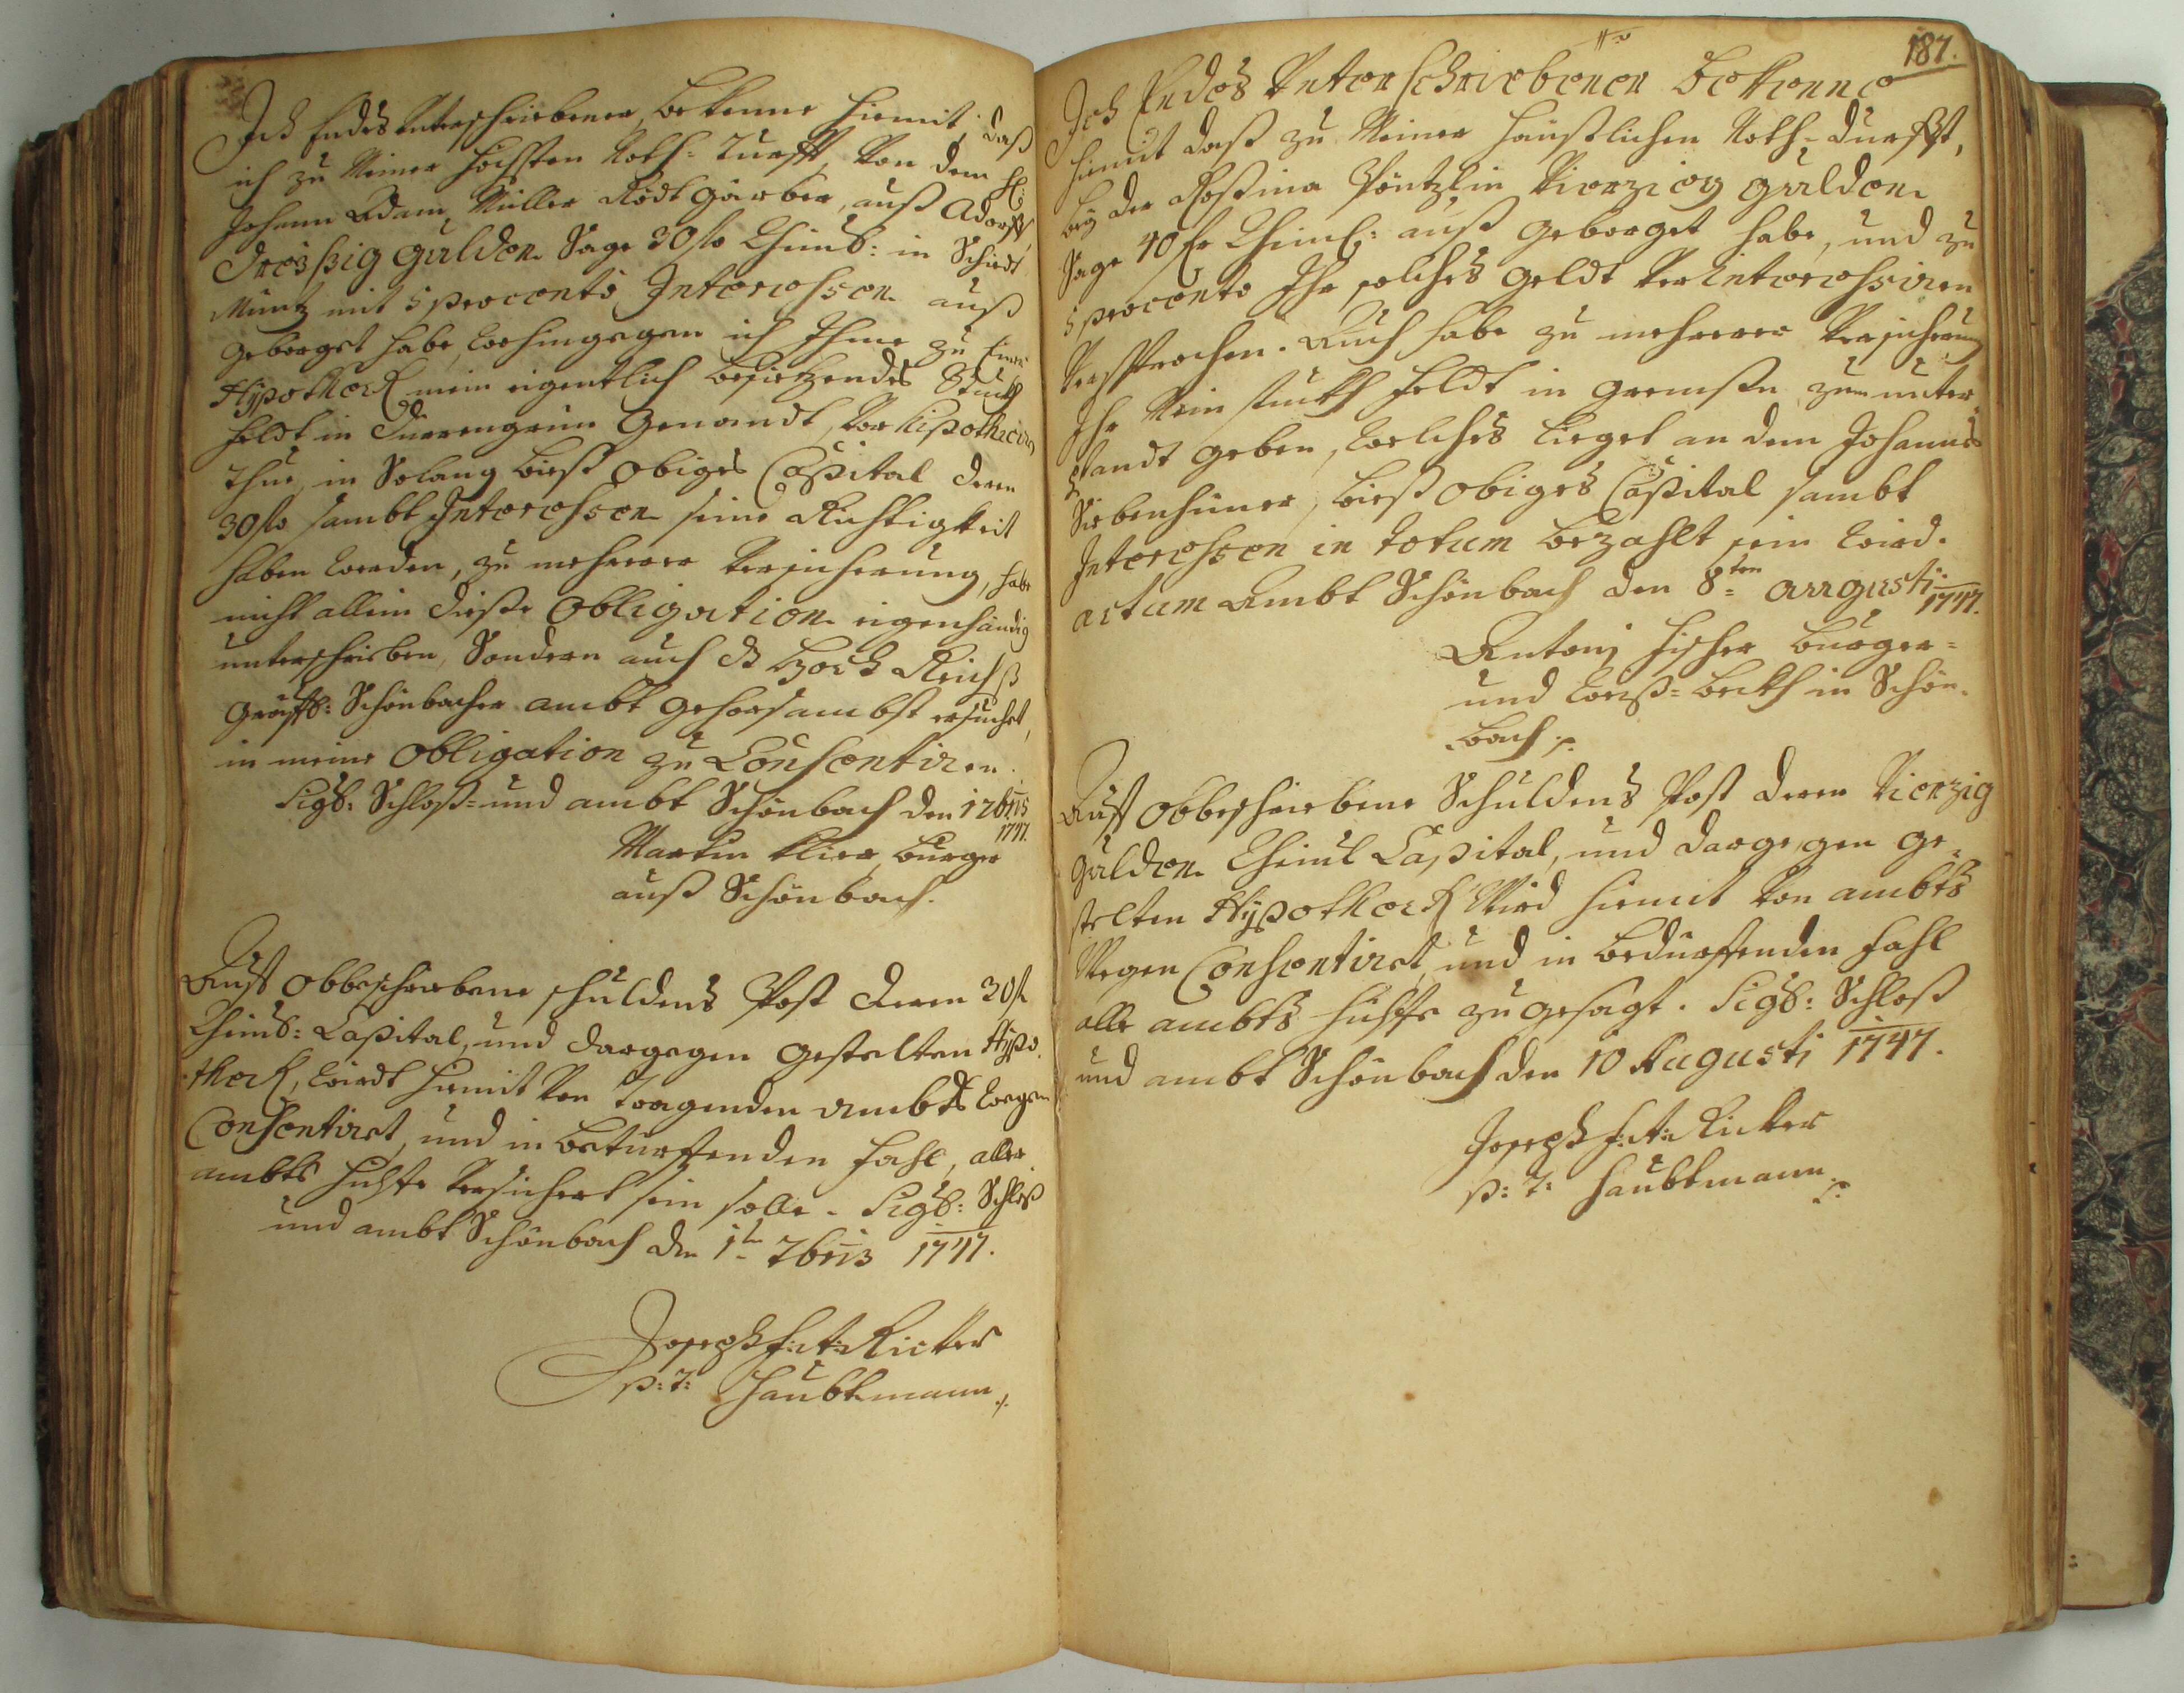 Ich Endes Unterschriebener, bekenne hiemit, daß
ich zu Meiner höchsten Noth-Turfft, von dem H:
Johann Adam Müller Rodt gärber, auß Adorff,
Dreißig gulden Sage 30 fl Rheinl: in Schiedt
Müntz mit 5 procento Interessen auß
geborget habe, wohingegen ich Ihme zu Einer
Hypotheck mein eigentlich besietzendes Stuckh
feldt in Dürrengrün Genandt, ver hipothecirn
thue, in Solang bieß obiges Capital deren
30 fl sambt Interessen seine Richtigkeit
haben werden, zu mehrerer versicherung, habe
nicht allein dieße Obligation eigenhändig
unterschrieben, Sondern auch Hoch Reichß
Gräffl: Schönbacher ambt gehorsambst ersuchet,
in meine Obligation zu Consentiren.
Sigl: Schloß- und ambt Schönbach den 1 7bris
1747.
Martin Klier, burger
auß Schönbach.
Auff obbeschriebene schuldens Post deren 30 fl
Rheinl: Capital, und dargegen gestelten Hypo
theck, wirdt hiemit von tragenden ambts wegen
Consentiret, und in beturffenden fahl, aller
ambts hülffe versichert sein solle. Sigl: Schloß
und ambt Schönbach den 1ten 7bris 1747.
Joseph f: A: Richter
p: t: Haubtmann
187.
Ich Endes Unterschriebener Bekenne
hiemit daß zu Meiner häußlichen Noth-durfft,
bey der Rosina Pöntzlin Vierzieg gulden
Sage 40 fl Rheinl: auß geborget habe, und zu
5 procento Ihr solches geldt ver interessiren
versprochen. Auch habe zu mehrerer versicherung
Ihr Mein stuckh feldt in gremsen zum unter
pfandt geben, welches lieget an dem Johannes
Siebenhüner, bieß obiges Capital sambt
Interessen in totum bezahlt sein wird.
actum Ambt Schönbach den 8ten augusti
1747.
Antonj Fischer burger-
und weiß-beckh in Schön-
bach
Auff obbeschriebene Schuldens Post deren Vierzig
gulden Rheinl Capital, und dargegen ge-
stelten Hypotheck Wird hiemit von ambts
Wegen Consentiret, und in bedürffenden fahl
alle ambts hülffe zu gesagt. Sigl: Schloß
und ambt Schönbach den 10 Augusti 1747.
Joseph f: A: Richter
p: t: Haubtmann